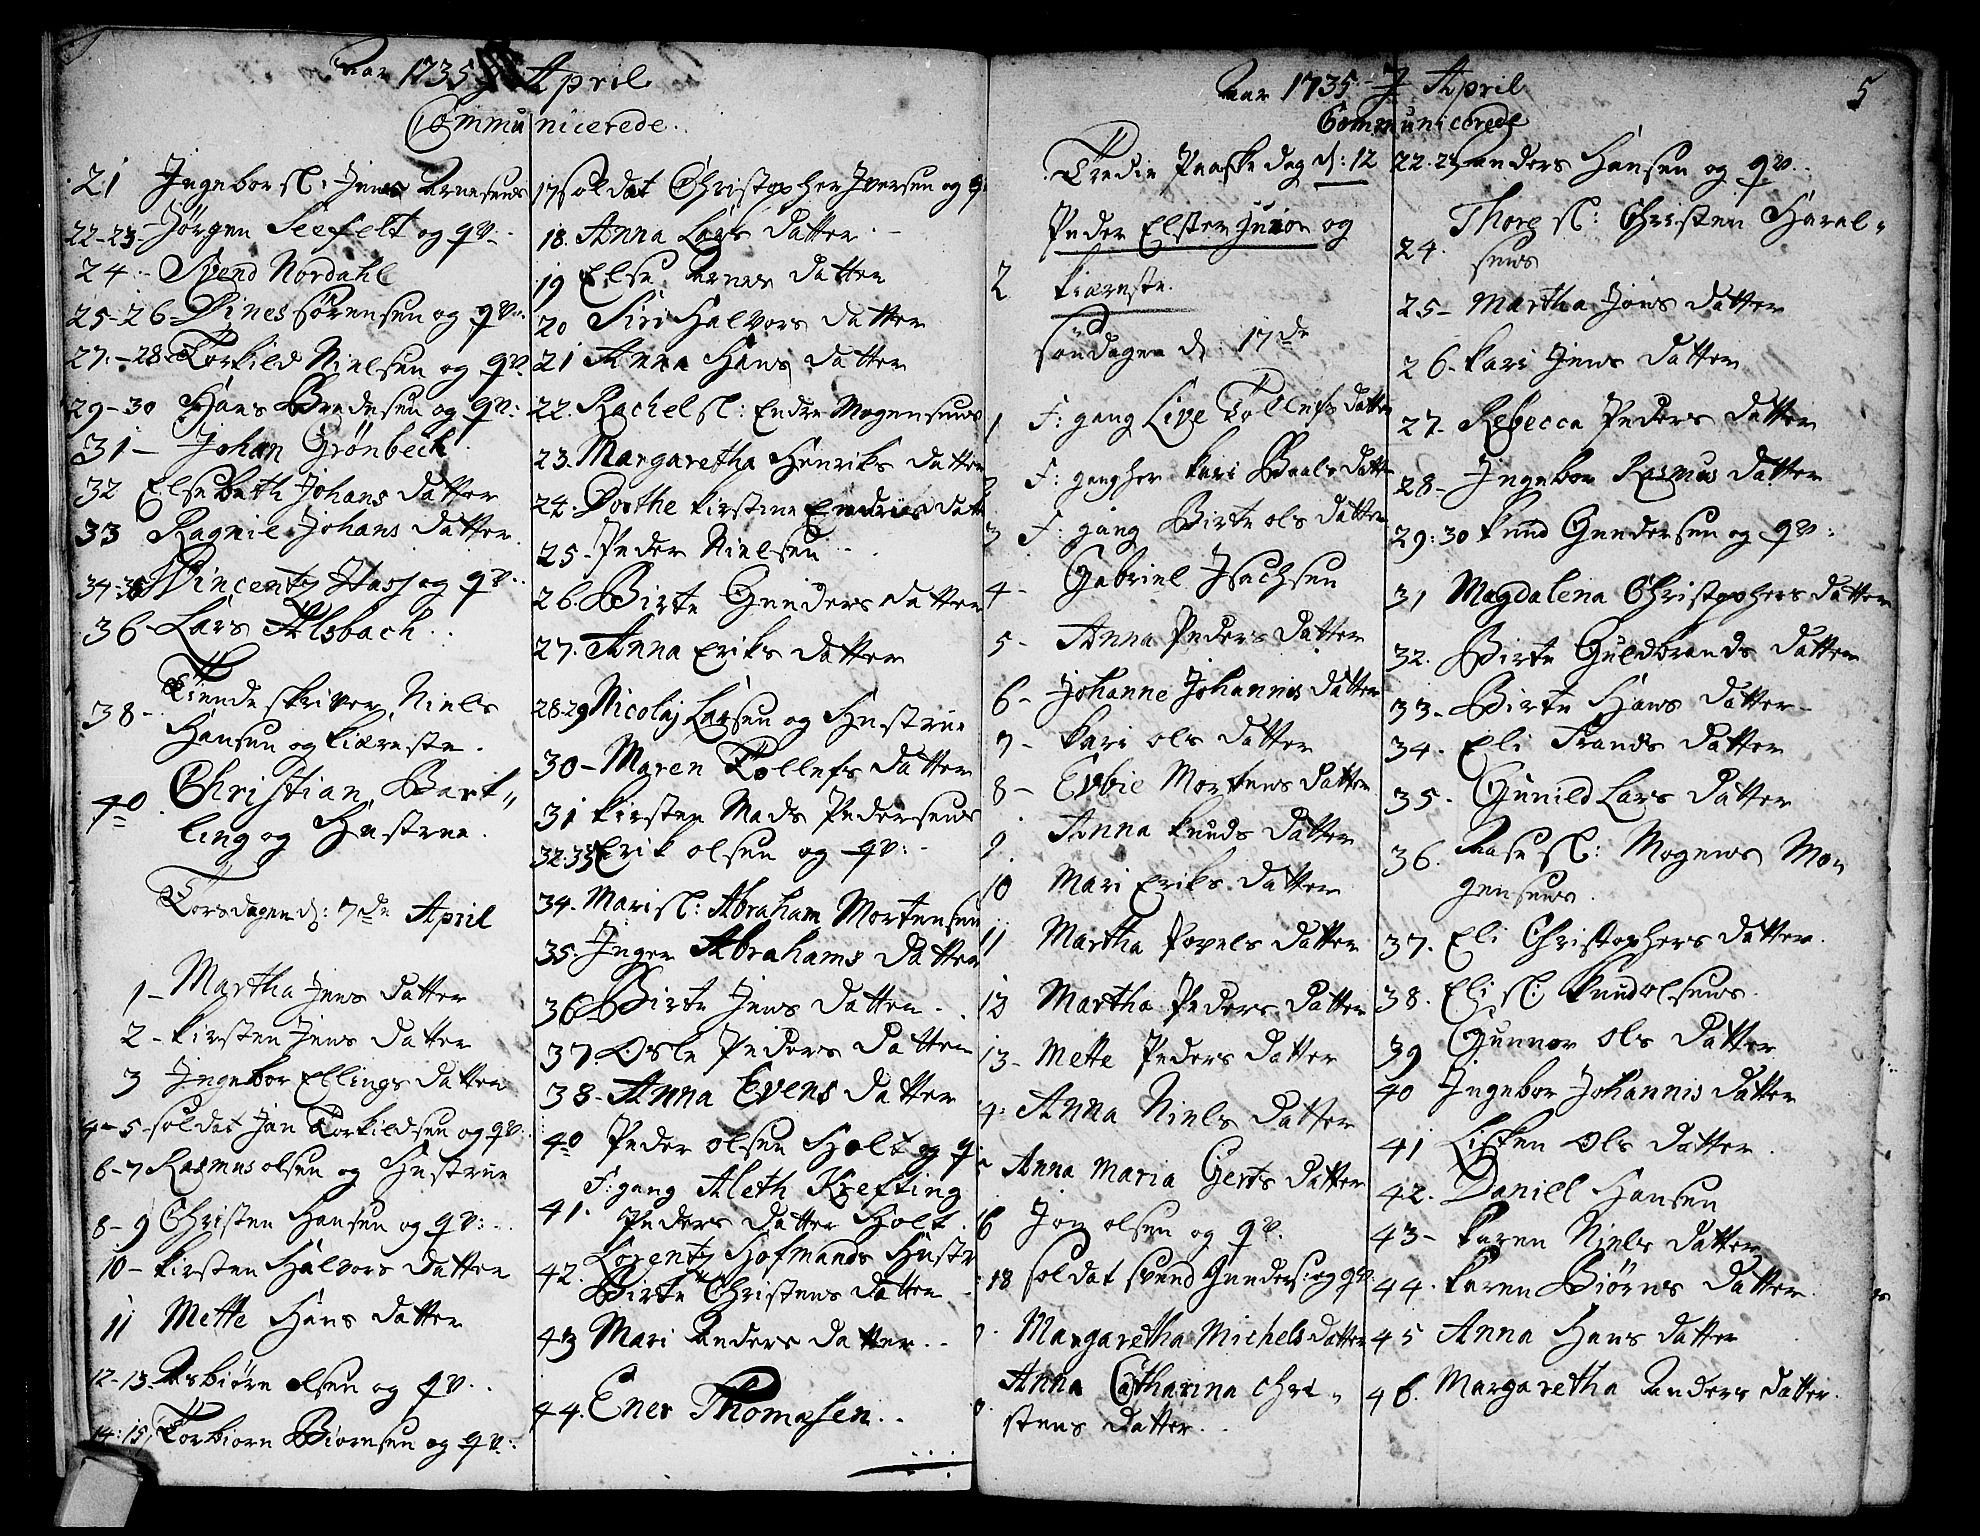 Aar 1735 April
Communicerede.
21 Ingebor sl: Jens Arnesens
22-23- Jørgen Seefelt og qv.
24 - Svend Nordahl
25-26- Dines Sørensen og qv.
27.-28. Torkild Nielsen og qv.
29-30 Hans Bredesen og qv:
31 - Johan Grønbech
32 Elsebeth Johans datter
33 Ragnil Johans datter.
34-35 Vincentz Hass og qv.
36- Lars Alsbach.
38- Tiendeskriver Niels
Hansen og kiæreste.
40 Christian Bart,,
ling og Hustrue.
Torsdagen d: 7de April
1- Martha Jens datter
2- Kirsten Jens datter
3 Ingebor Ellings datter
4-5- soldat Jan Torkildsen og qv.
6-7 Rasmus olsen og Hustrue
8-9 Christen Hansen og qv:
10- Kirsten Halvors datter
11 Mette Hans datter
12-13. Asbiørn olsen og qv.
14:15, Torbiorn Biørnsen og qv:
17 soldat Christopher Iversen og q
18. Anna Lars datter.
19 Else Arnes datter
20 Siri Halvors datter
21 Anna Hans datter
22. Rachel sl: Endre Mogensens
23. Margaretha Henriks datter
24. Dorthe Kirstine datt
25- Peder Nielsen
26. Birte Gunders datter
27. Anna Eriks datter
28-29 Nicolaj Larsen og Hustrue
30- Maren Tollefs datter
31 Kirsten Mads Pedersens
32:33 Erik olsen og qv:
34. Mari sl: Abraham Mortensen
35. Inger Abrahams datter
36 Birte Jens datter.
37. Osle Peders datter
38- Anna Evens datter
40 Peder olsen Holt og q
F: gang Aleth Krefting
41. Peders datter Holt.
42. Lorentz Hofmands Hustr
Birte Christens datter
43 Mari Anders datter.
44. Ener Thomasen.
Aar 1735 - April
5
Communicerede
Tredie Paaske dag d: 12
Peder Elster junior og
2 kiæreste.
Søndagen d. 17de
1 F: gang Live Tollefs datter
2 F: gang her Kari Boels datt
3 F: gang Birte ols datter
4- Gabriel Isachsen
5- Anna Peders datter
6- Johanne Johannis datter
7- Kari ols datter
8- Ebbie Mortens datter
9. Anna Knuds datter
10 Mari Eriks datter
11 Martha Povels datter
12 Martha Peders datter
13- Mette Peders datter
4. Anna Niels datter
Anna Maria Gerts datter
6 Jon olsen og qv.
18 soldat svend Gunders: og qv:
Margaretha Michels datter
Anna Catharina Chri-,,
stens datter.
22.23 Anders Hansen og qv.
Thore sl: Christen Haral-
24. sens
25- Martha Jons datter
26- Kari Jens datter
27- Rebecca Peders datter
28- Ingebor Rasmus datter
29:30 Knud Gundersen og qv:
31 Magdalena Christophers datter
32. Birte Guldbrands datter
33- Birte Hans datter-
34. Eli Frands datter
35. Gunild Lars datter
36. Aase sl: Mogens Mo-
gensens.
37. Eli Christophers datter.
38. Eli sl: Knud olsens.
39 Gunnor ols datter
40 Ingebor Johannis datter
41 Lisken Ols datter.
42. Daniel Hansen
43- Karen Niels datter
44. Karen Biørns datter.
45 Anna Hans datter
46. Margaretha Anders datter.